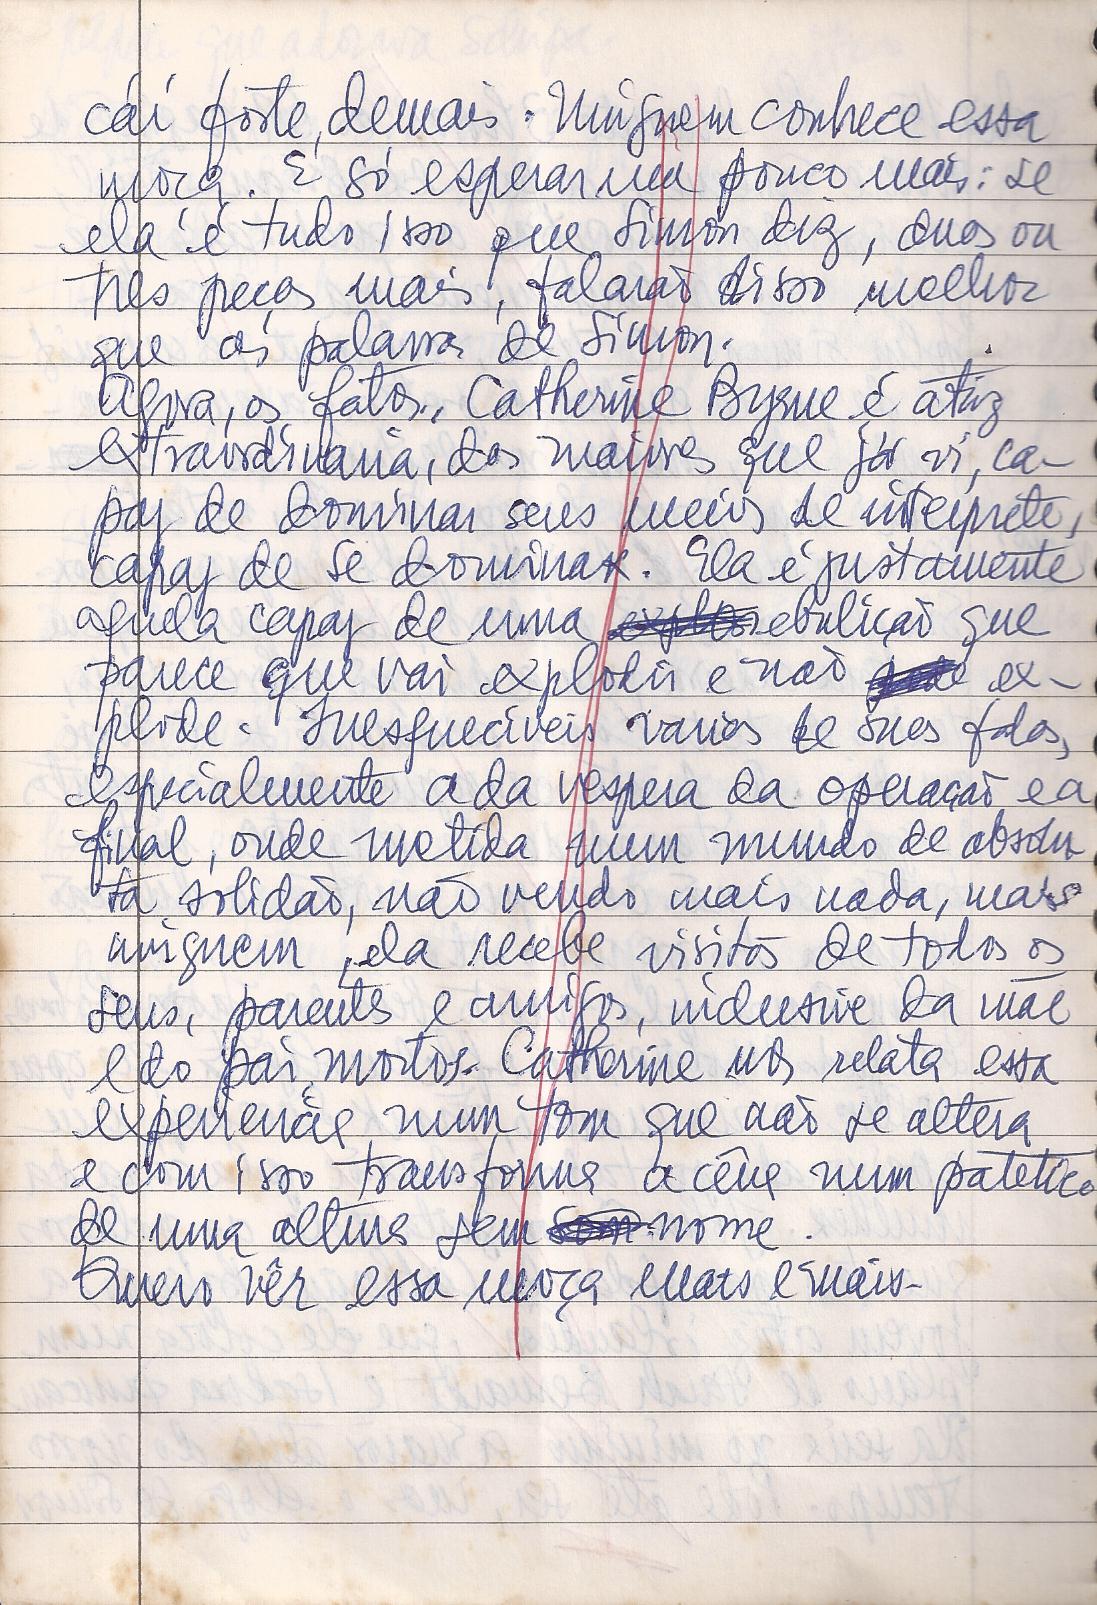 cai forte, demais. Ninguem conhece essa
moça. É só esperar um pouco mais: se
ela é tudo isso que Simon diz, duas ou
tres peças mais, falarão disso melhor
que as palavras de Simon.
Agora, os fatos. Catherine Byrne é atriz
extraordinaria, das maiores que já vi, ca-
paz de dominar seus meios de interprete,
capaz de se dominar. Ela é justamente
aquela capaz de uma ebulição que
parece que vai explodir e não ex-
plode. Inesqueciveis varias de suas falas,
especialmente a da vespera da operação e a
final, onde metida num mundo de absolu
ta solidão, não vendo mais nada, mais
ninguem, ela recebe visitas de todos os
seus, parentes e amigos, inclusive da mãe
e do pai, mortos. Catherine nos relata essa
experiencia num tom que não se altera
e com isso transforma a cena num patetico
de uma altura sem nome.
Quero vêr essa moça mais e mais-